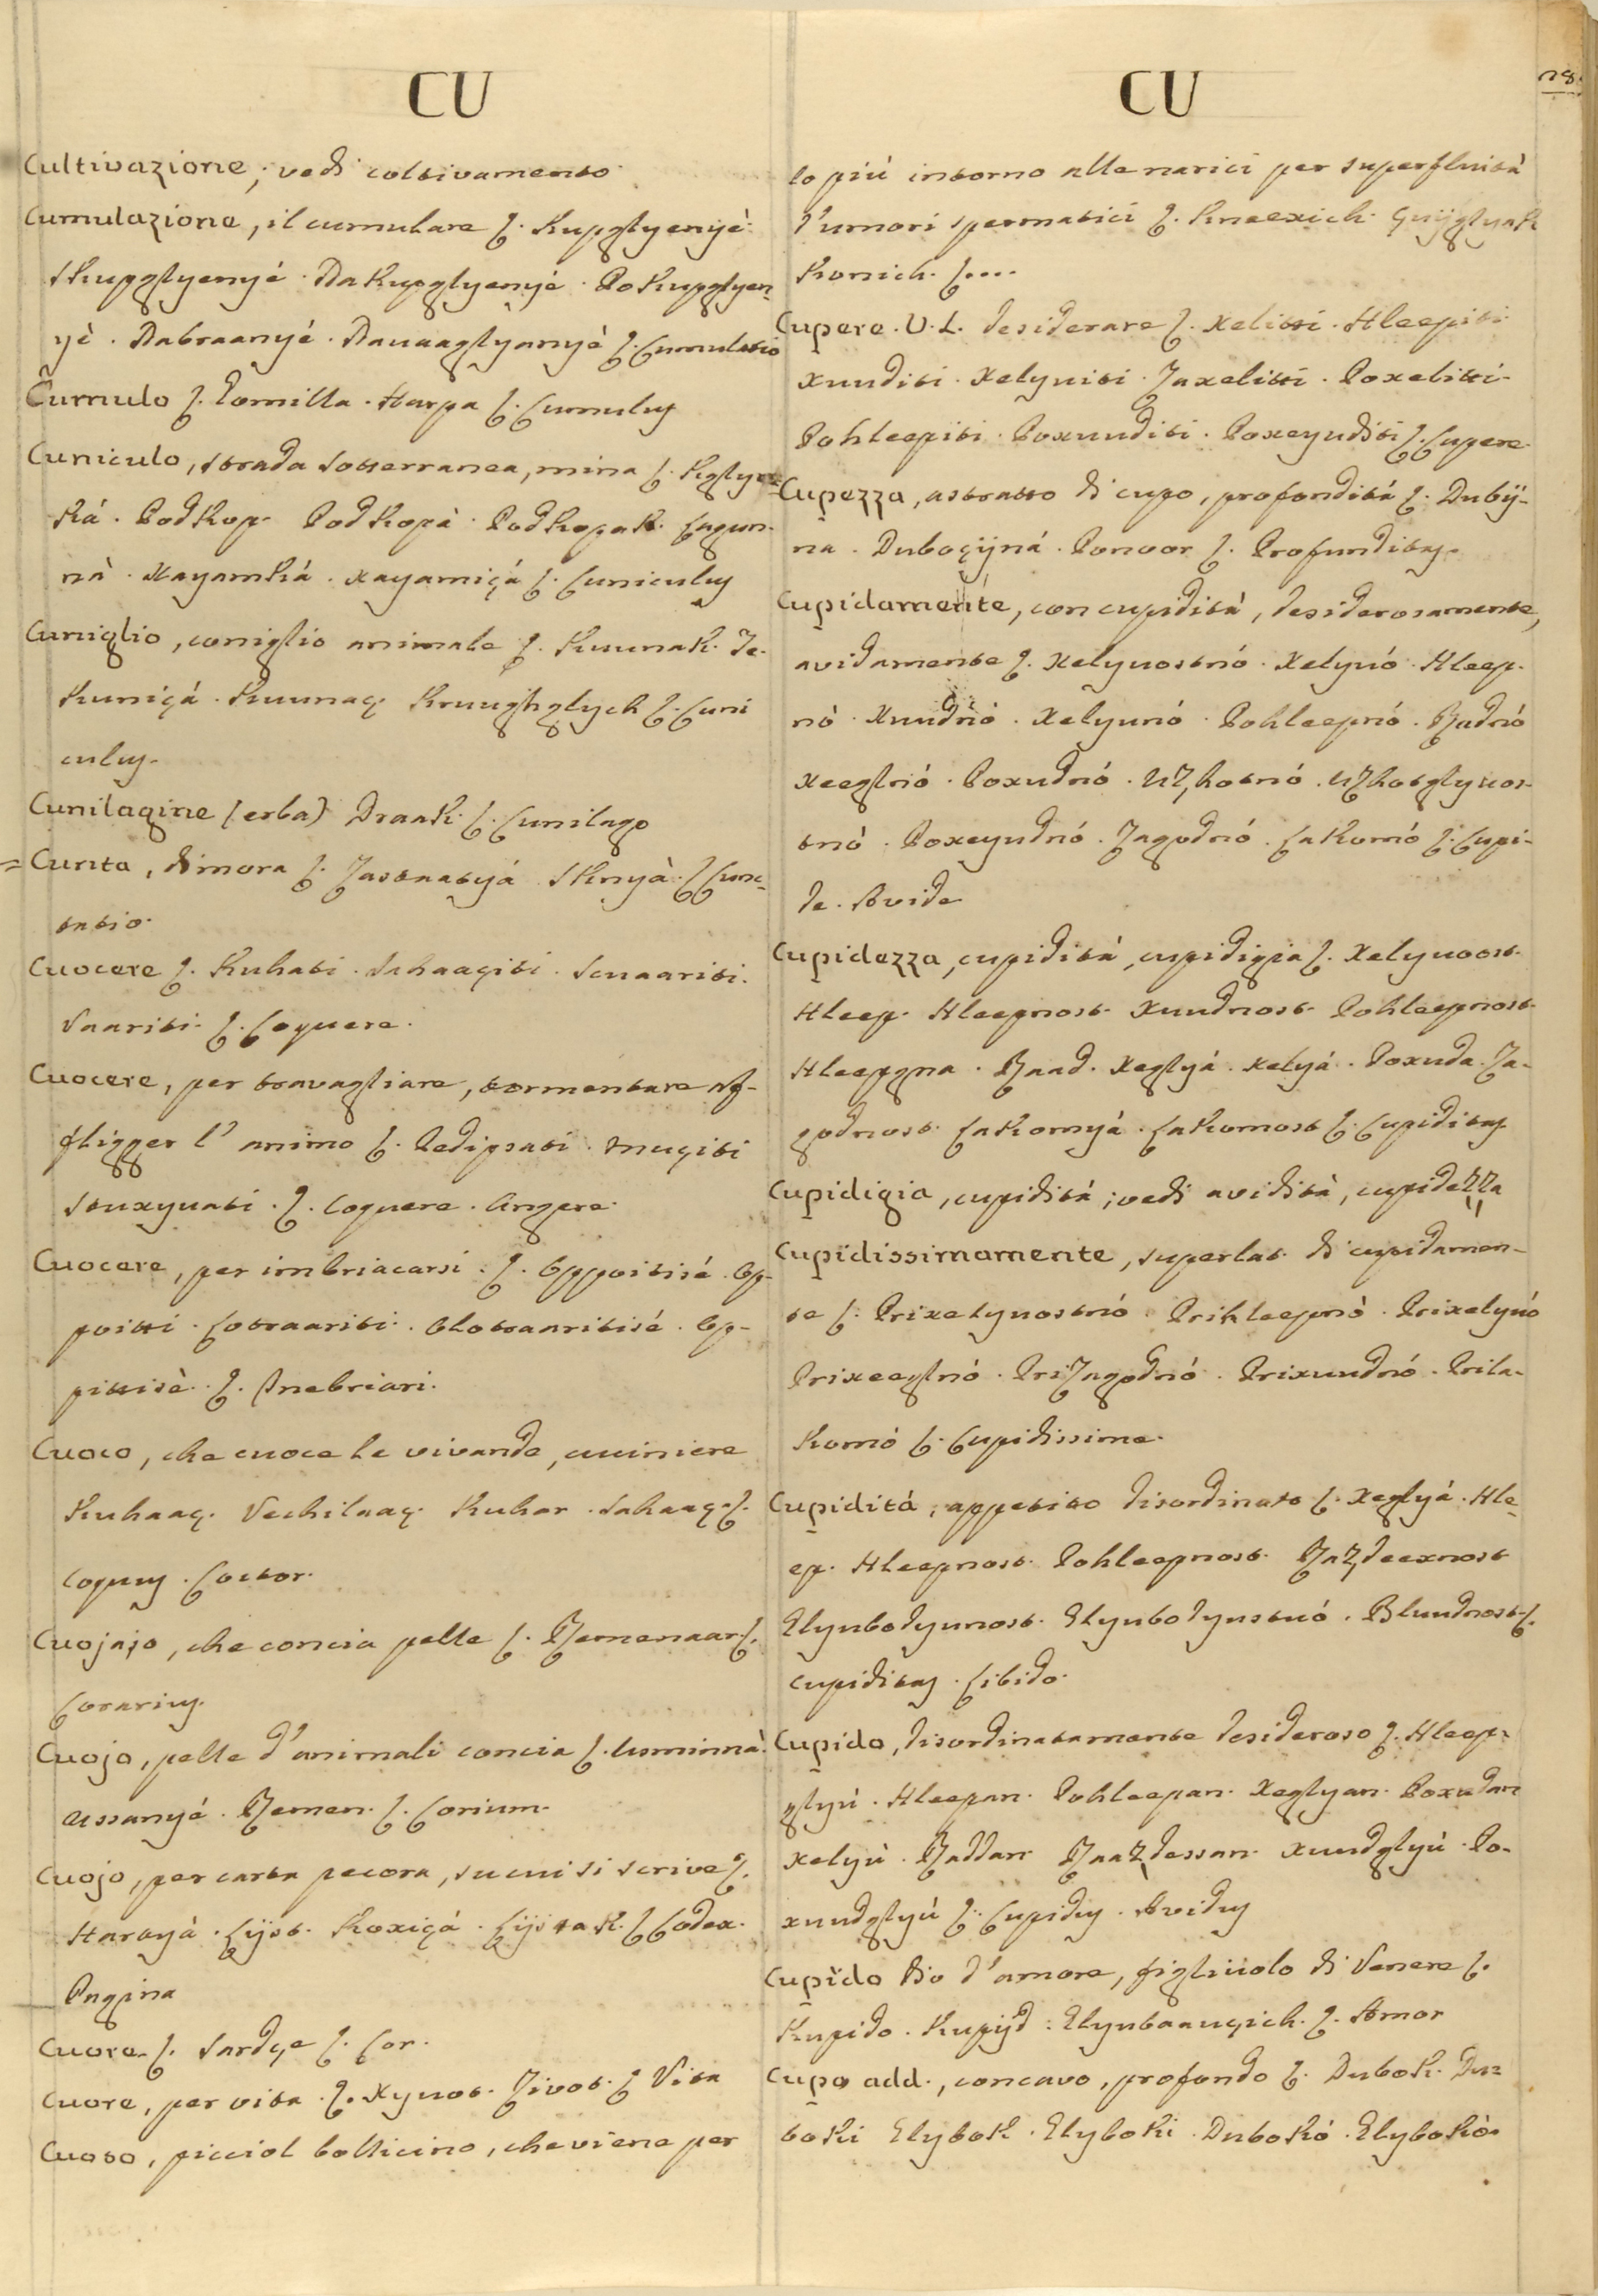 CU
Cultivazione, vedi coltivamento
Cumulazione, il cumulare I. Kupglyenyè.
Skupglyenyé. Dakupglyenyé. Pokupglyen-
yè. Dabraanyé. Davaaglyanyè L. Cumulatio
Cumulo I. Gomilla. Harpa L. Cumulus
Cuniculo, strada sotterranea, mina I.
ká. Podkop. Podkopà. Podkopak. Lagun-
nà. Xayamká. xayamiçá L. Cuniculus
Cuniglio, coniglio animale I. Kuunak. Ze-
kuniçá. Kuunaç. L. Cuni
culus.
Cunilagine (erba) Draak. L. Cunilago
= Cunta, dimora I. Zastaatyá. Sknyà. L. Cunc-
tatio.
Cuocere I. Kuhati. Sahaaçiti. Scuaariti.
Vaariti. L. Coquere.
Cuocere, per travagliare, tormentare af-
fligger l'animo I. Pedipsati. Muçiti
Stuxyuati. L. Coquere. Angere.
Cuocere, per imbriacarsi. I. Oppoitisé. Op-
poitti. Lotraariti. Olotraaritisé. Op-
pittisè. L. Inebriari.
Cuoco, che cuoce le vivande, cuciniere
Kuhaaç. Vechilaaç. Kuhar. Sahaaç. L.
Coquus. Coctor.
Cuojajo, che concia pelle I. Remenaar. L.
Corarius.
Cuojo, pelle d'animali concia I. Usminnà.
Ussanyé. Remen. L. Corium.
Cuojo, per carta pecora, su cui si scrive I.
Harayà. Lijst. Koxiçá. Lijstak. L. Codex.
Pagina
Cuore. I. Sardçe L. Cor.
Cuore, per vita. I. Xyuot. Zivot. L. Vita
Cuoso, picciol bollicino, che viene per
CU
78.
lo più intorno alle narici per superfluità
d'umori spermatici I. Kneexich.
Konich. L....
Cupere. V. L. desiderare I. Xelitti. Hleepiti
Xuuditi. Xelyuiti. Zaxelitti. Poxelitti.
Pohleepiti. Poxuuditi. Poxeyuditi L. Cupere.
Cupezza, astratto di cupo, profondità I. Dubij-
na. Duboçijná. Ponoor L. Profunditas.
Cupidamente, con cupidità, desiderosamente,
avidamente I. Xelyuostnó. Xelyuó. Hleep-
nò. Xuudnó. Xelyunó. Pohleepnó. Radnó
Xeeglnó. Poxudnó. Uzhotnó. Uzhotglyuos-
tnó. Poxeyudnó. Zagodnó. Lakomó L. Cupi-
de. Avide
Cupidezza, cupidità, cupidigia I. Xelyuoost.
Hleep. Hleepnost. Xuudnost. Pohleepnost.
Hleepgna. Raad. Xeglyá. Xelyá. Poxuda. Za-
godnost. Lakomyá. Lakomost L. Cupiditas
Cupidigia, cupidità; vedi avidità, cupidezza
Cupidissimamente, superlat. di cupidamen-
te I. Prixelyuostnó. Prihleepnò. Prixelyuó
Prixeeglnó. Prizagodnó. Prixuudnó. Prila-
komó L. Cupidissime.
Cupidità, appetito disordinato I. Xeglyá. Hle-
ep. Hleepnost. Pohleepnost. Razdeexnost
Glyubodyunost. Glyubodyustuó. Bluudnost. L.
Cupiditas. Libido.
Cupido, disordinatamente desideroso I. Hleep-
glyú. Hleepan. Pohleepan. Xeglyan. Poxudan
Xelyù. Raddan. Raazdessan. Xuudglyù. Po-
xuudglyú L. Cupidus. Avidus
Cupido dio d'amore, figliuolo di Venere I.
Kupido. Kupijd. Glyubaauçich. L. Amor
Cupo add., concavo, profondo I. Dubok. Du-
boki Glybok. Glyboki. Dubokó. Glybokò.